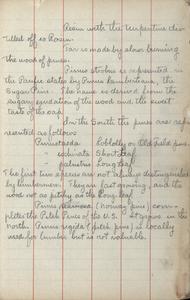 Resin with the turpentine dis-
tilled off is Rosin.
Tar is made by slow burning
the wood of pines.
Pinus strobus is represented in
the Pacific states by Pinus Lambertiana, the
Sugar Pine. The name is derived from the
sugary exudation of the wood and the sweet
taste of the
In the South the pines are rep-
resented as follows
Pinus taeda Loblolly or Old Field pine.
" echinata Shortleaf
" palustris Longleaf
The first two species are not always distinguished
by lumbermen. They are fast growing, and the
wood not as pitchy as the Longleaf.
Pinus resinosa (norway pine) com-
pletes the Pitch Pines of the U.S. It grows in the
north. Pinus rigida (pitch pine) is locally
used for lumber but is not valuable.